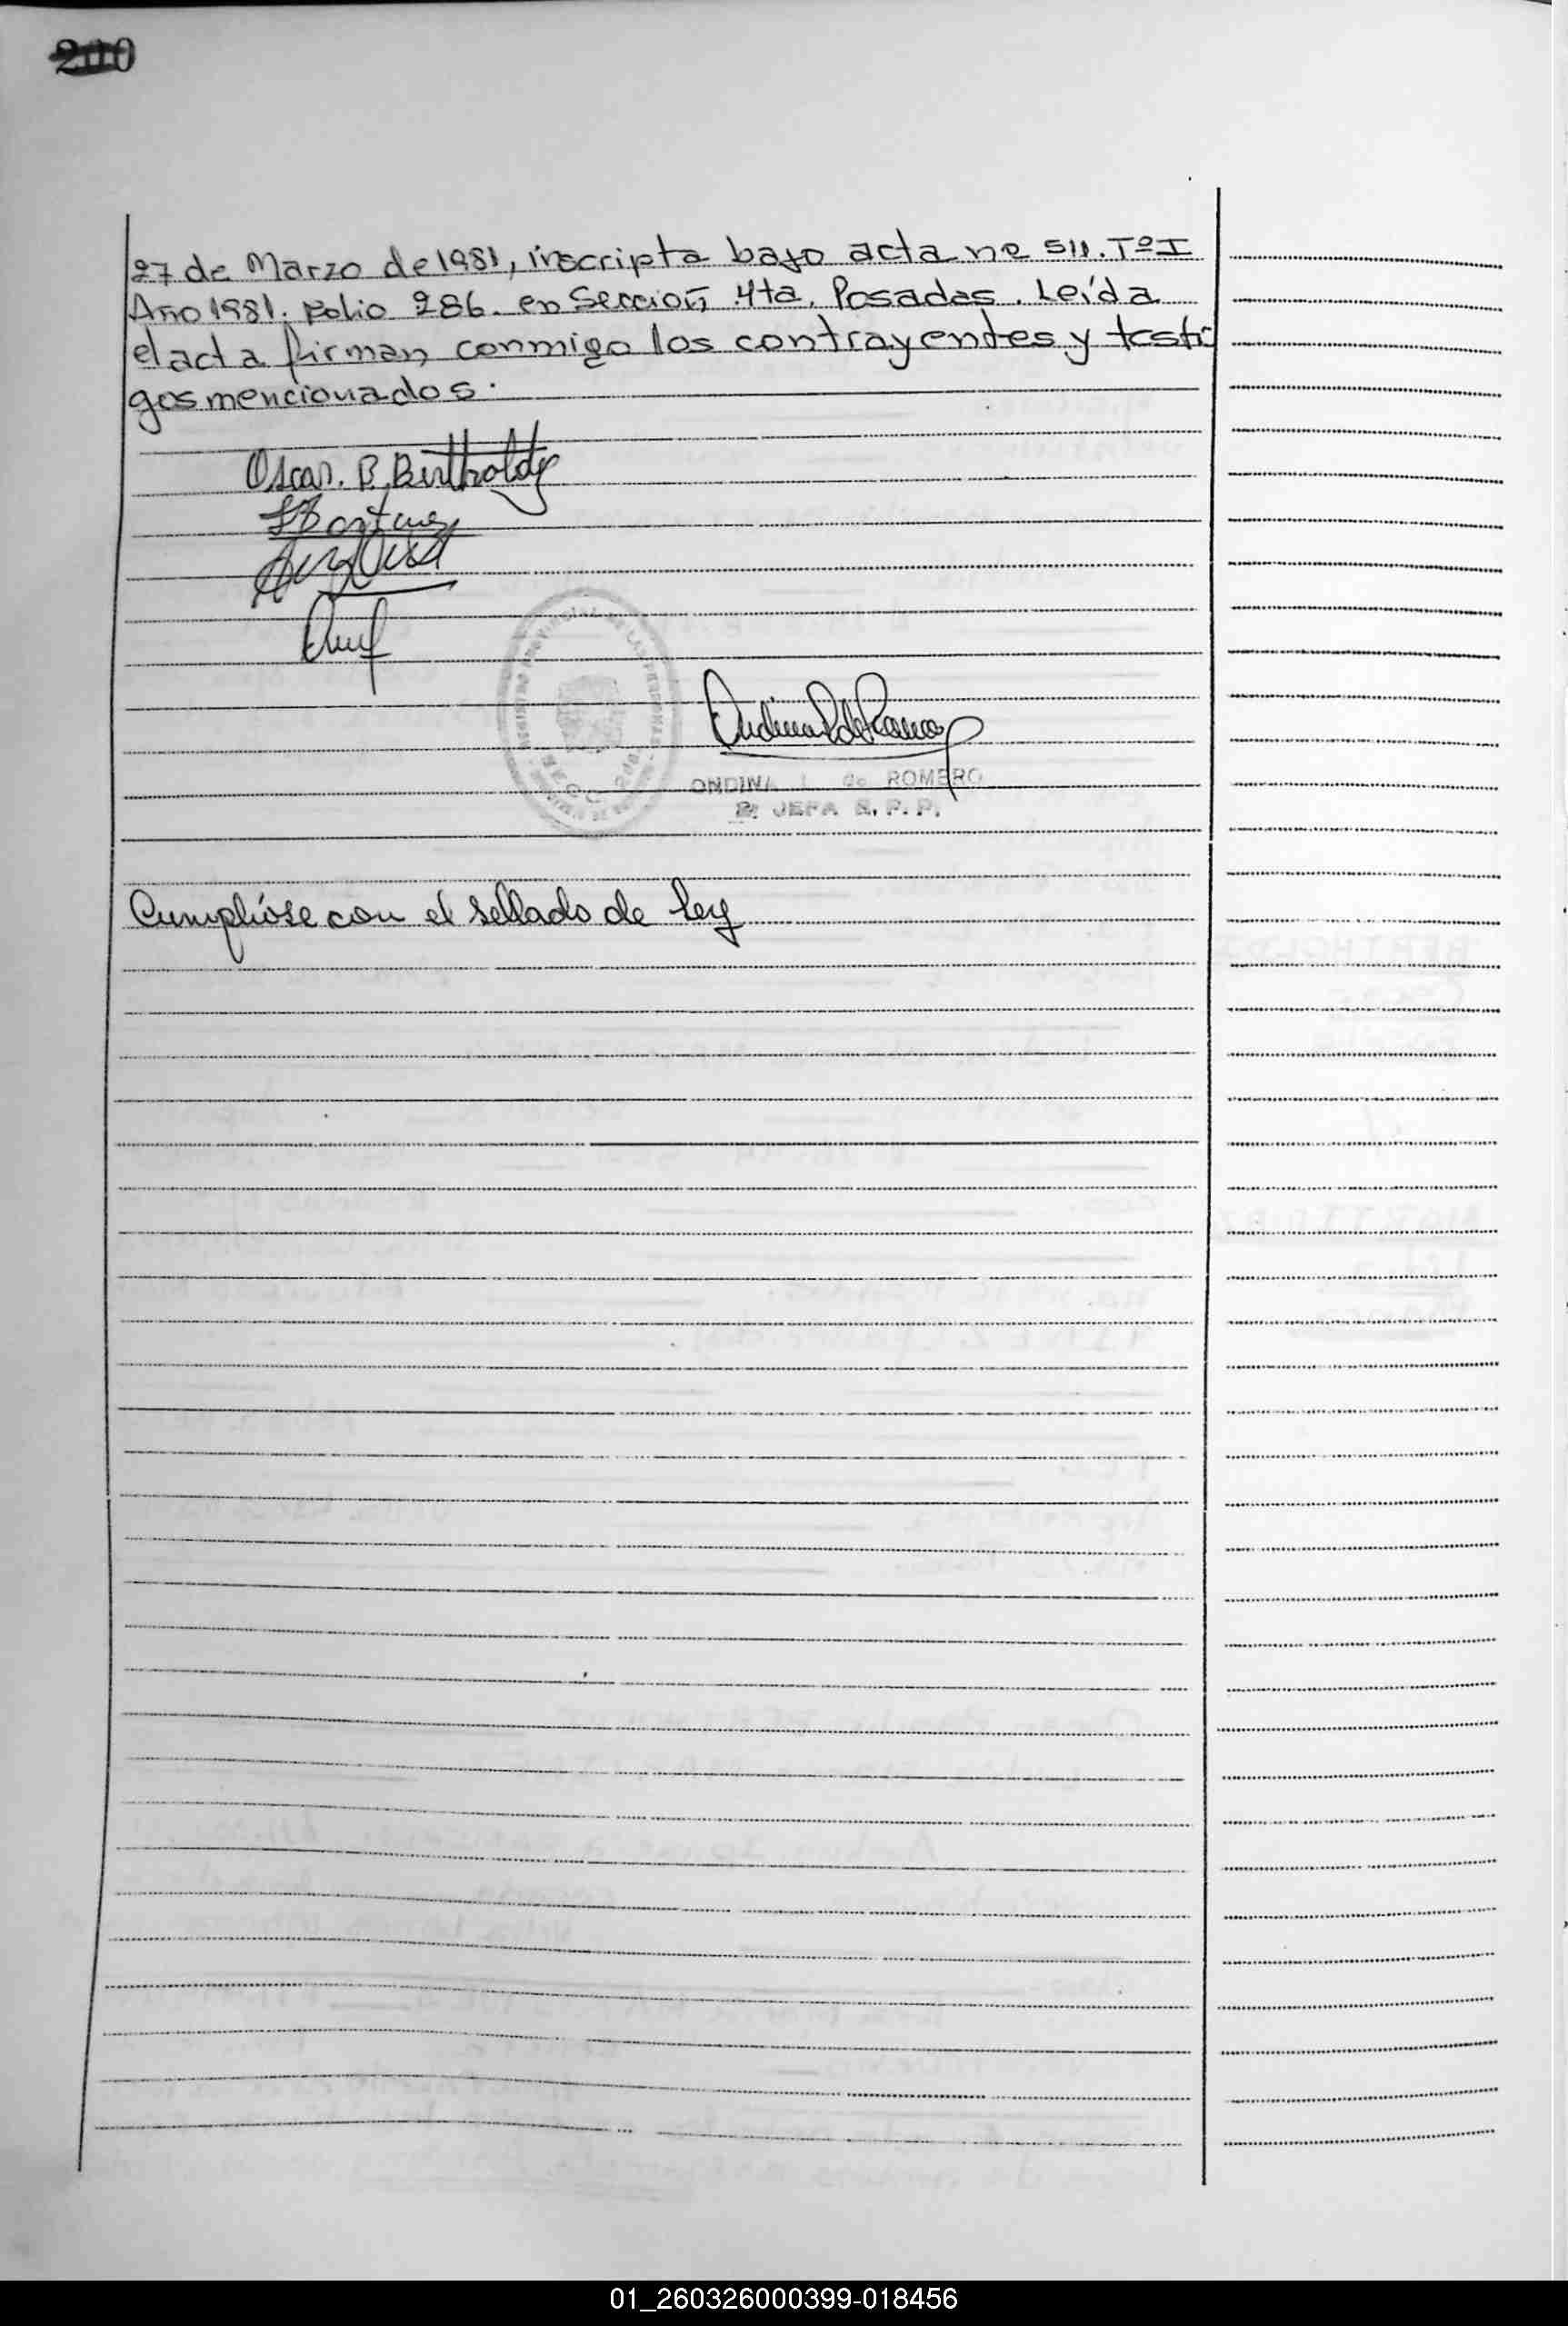 200
27 de Marzo de 1981, inscripta bajo acta nº 511. Tº I
Año 1981. Folio 286. en Sección 4ta. Posadas. Leída
el acta firman conmigo los contrayentes y testi
gos mencionados.
Oscar. B. Bertholdy
ONDINA L. de ROMERO
2ª JEFA R. P. P.
Cumplióse con el sellado de ley
01_260326000399-018456